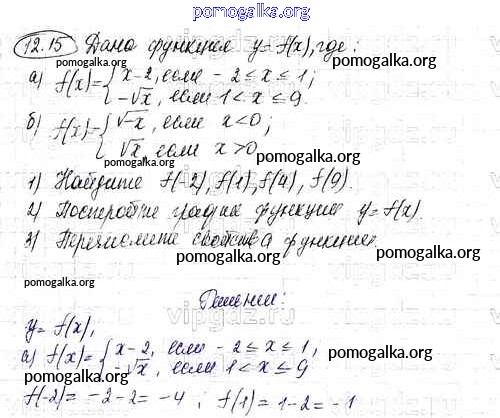 pomogalka.org
12.15 Дана функция y=f(x), где:
а) f(x)={x-2, если -2≤x≤1;
-√x, если 1<x≤9.
pomogalka.org
б) f(x)={√-x, если x<0;
√x, если x>0
pomogalka.org pomogalka.org
1) Найдите f(-2), f(1), f(4), f(9).
pomogalka.org
2) Постройте график функции y=f(x).
3) Перечислите свойства функции.
pomogalka.org
pomogalka.org
Решение:
vipgdz.ru
y=f(x),
а) f(x)={x-2, если -2≤x≤1,
-√x, если 1<x≤9
pomogalka.org
pomogalka.org
f(-2)=-2-2=-4; f(1)=1-2=-1